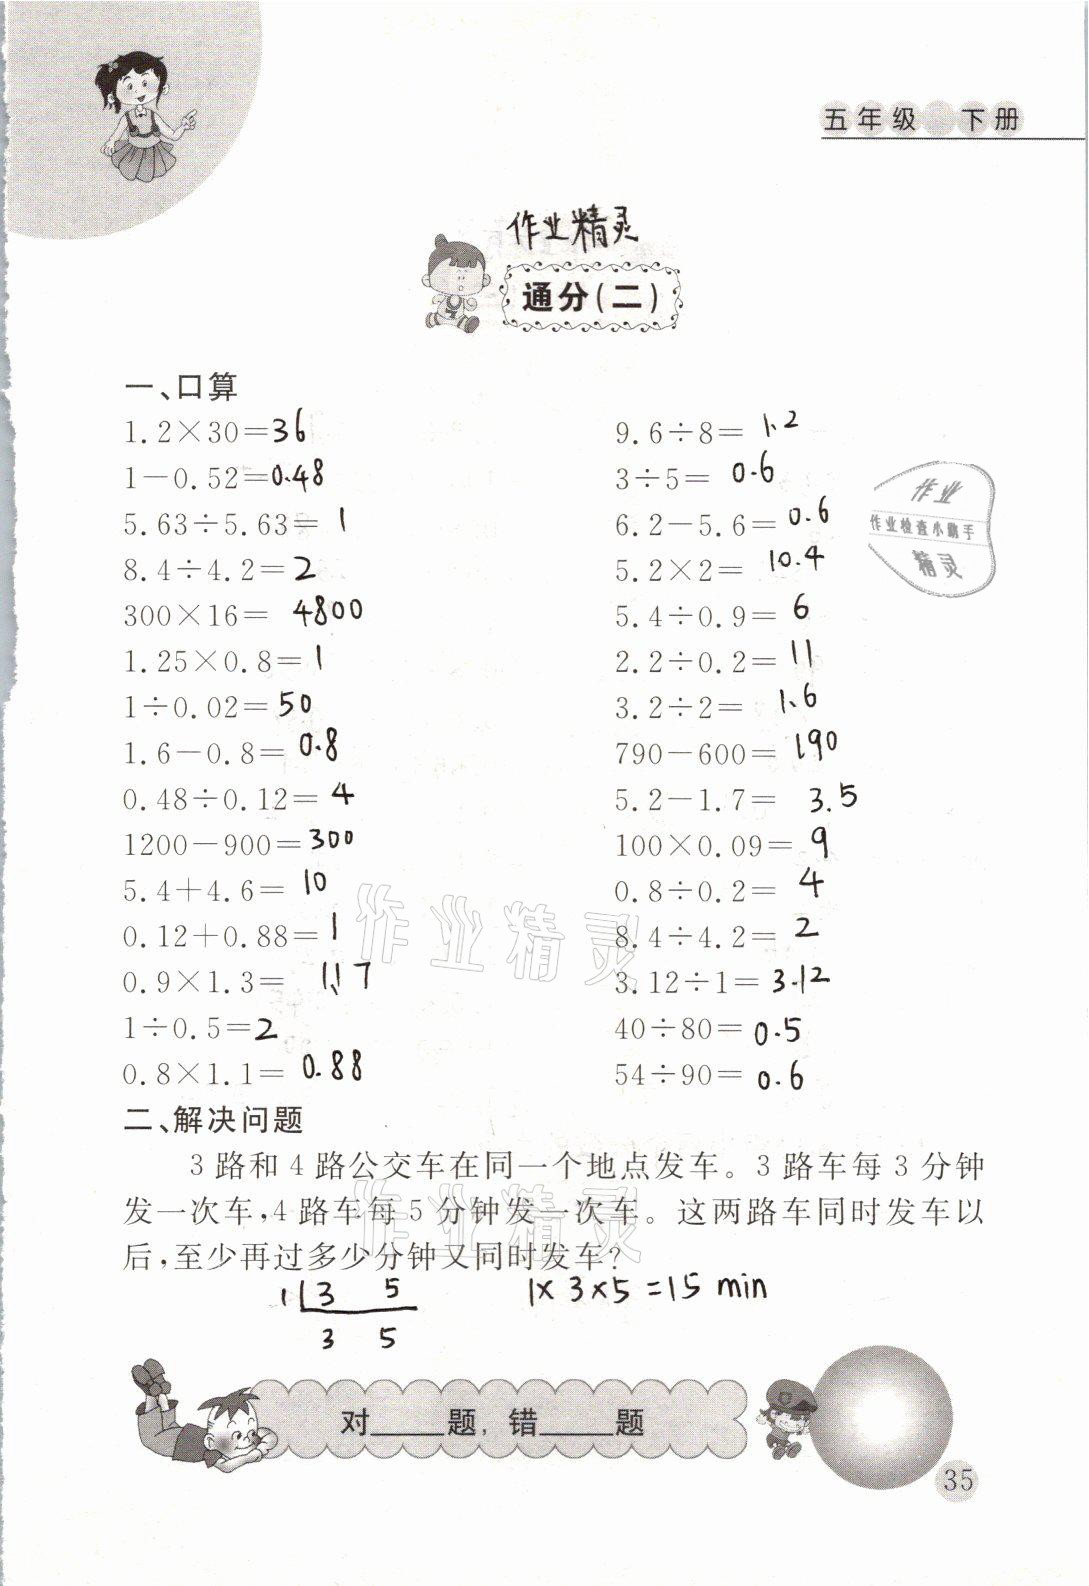 五年级 下册
作业精灵
通分(二)
一、口算
1.2×30=36
9.6÷8=1.2
1-0.52=0.48
3÷5=0.6
5.63÷5.63=1
6.2-5.6=0.6
8.4÷4.2=2
5.2×2=10.4
300×16=4800
5.4÷0.9=6
1.25×0.8=1
2.2÷0.2=11
1÷0.02=50
3.2÷2=1.6
1.6-0.8=0.8
790-600=190
0.48÷0.12=4
5.2-1.7=3.5
1200-900=300
100×0.09=9
5.4+4.6=10
0.8÷0.2=4
0.12+0.88=1
8.4÷4.2=2
0.9×1.3=1.17
3.12÷1=3.12
1÷0.5=2
40÷80=0.5
0.8×1.1=0.88
54÷90=0.6
作业
作业检查小助手
精灵
作业精灵
二、解决问题
3路和4路公交车在同一个地点发车。3路车每3分钟
发一次车,4路车每5分钟发一次车。这两路车同时发车以
后,至少再过多少分钟又同时发车?
作业精灵
1 3 5
3 5
1×3×5=15 min
对____题,错____题
35